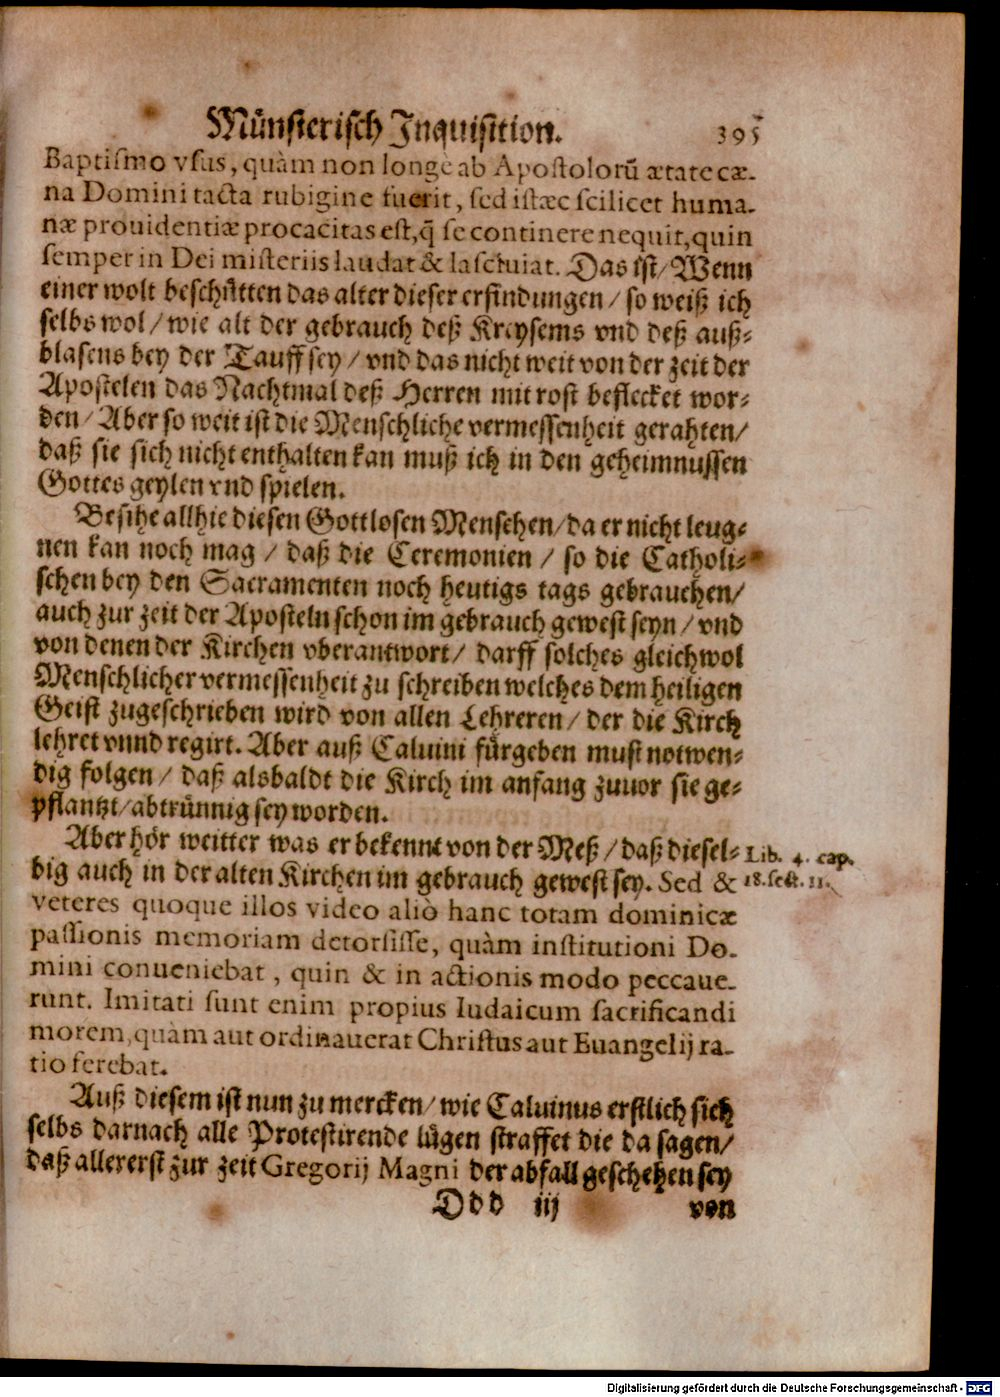 Münsterisch Inquisition. 395
Baptismo vsus, quàm non longè ab Apostolorũ ætate cæ-
na Domini tacta rubigine fuerit, sed istæc scilicet huma-
næ prouidentiæ procacitas est, q̃ se continere nequit, quin
semper in Dei misteriis laudat & lasciuiat. Das ist/ Wenn
einer wolt beschütten das alter dieser erfindungen/ so weiß ich
selbs wol/ wie alt der gebrauch deß Kreysems vnd deß auß-
blasens bey der Tauff sey/ vnd das nicht weit von der zeit der
Apostelen das Nachtmal deß Herren mit rost beflecket wor-
den/ Aber so weit ist die Menschliche vermessenheit gerahten/
daß sie sich nicht enthalten kan muß ich in den geheimnussen
Gottes geylen vnd spielen.
Besihe allhie diesen Gottlosen Menschen/ da er nicht leug-
nen kan noch mag/ daß die Ceremonien/ so die Catholi-
schen bey den Sacramenten noch heutigs tags gebrauchen/
auch zur zeit der Aposteln schon im gebrauch gewest seyn/ vnd
von denen der Kirchen vberantwort/ darff solches gleichwol
Menschlicher vermessenheit zu schreiben welches dem heiligen
Geist zugeschrieben wird von allen Lehreren/ der die Kirch
lehret vnnd regirt. Aber auß Caluini fürgeben must notwen-
dig folgen/ daß alsbaldt die Kirch im anfang zuuor sie ge-
pflantzt/ abtrünnig sey worden.
Aber hör weitter was er bekennt von der Meß/ daß diesel-
big auch in der alten Kirchen im gebrauch gewest sey. Sed &
Lib. 4. cap.
18. sect. 11.
veteres quoque illos video aliò hanc totam dominicæ
passionis memoriam detorsisse, quàm institutioni Do-
mini conueniebat, quin & in actionis modo peccaue-
runt. Imitati sunt enim propius Iudaicum sacrificandi
morem, quàm aut ordinauerat Christus aut Euangelij ra-
tio ferebat.
Auß diesem ist nun zu mercken/ wie Caluinus erstlich sich
selbs darnach alle Protestirende lügen straffet die da sagen/
daß allererst zur zeit Gregorij Magni der abfall geschehen sey
Ddd iij von
Digitalisierung gefördert durch die Deutsche Forschungsgemeinschaft - DFG